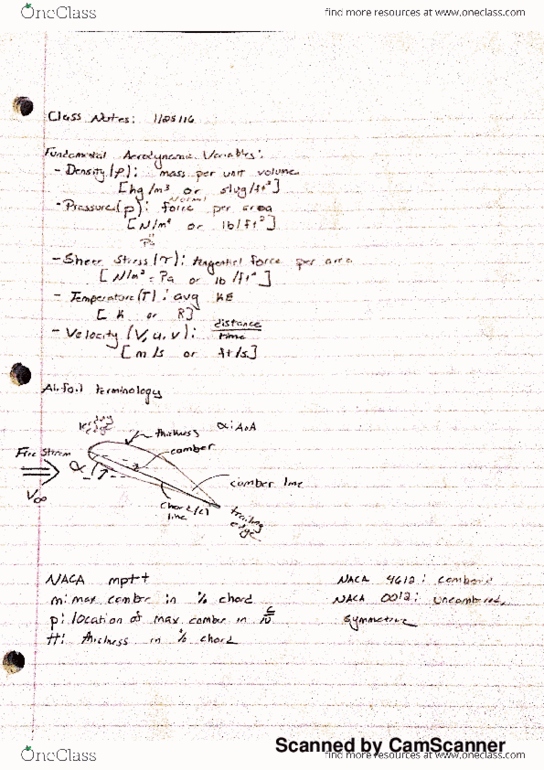 OneClass
find more resources at www.oneclass.com
Class Notes: 1/25/16
Fundamental Aerodynamic Variables:
- Density (ρ): mass per unit volume
[kg/m³ or slug/ft³]
- Pressure (p): normal force per area
[N/m² or lb/ft²]
Pa
- Shear Stress (τ): tangential force per area
[N/m² = Pa or lb/ft²]
- Temperature (T): avg KE
[K or R]
- Velocity (V, u, v): distance/time
[m/s or ft/s]
Airfoil terminology
leading edge
thickness
α: AoA
camber
Free Stream
α
V∞
camber line
chord (c) line
trailing edge
NACA mptt
m: max camber in % chord
p: location of max camber in c/10
tt: thickness in % chord
NACA 4612: cambered
NACA 0012: uncambered,
symmetric
Scanned by CamScanner
OneClass
find more resources at www.oneclass.com